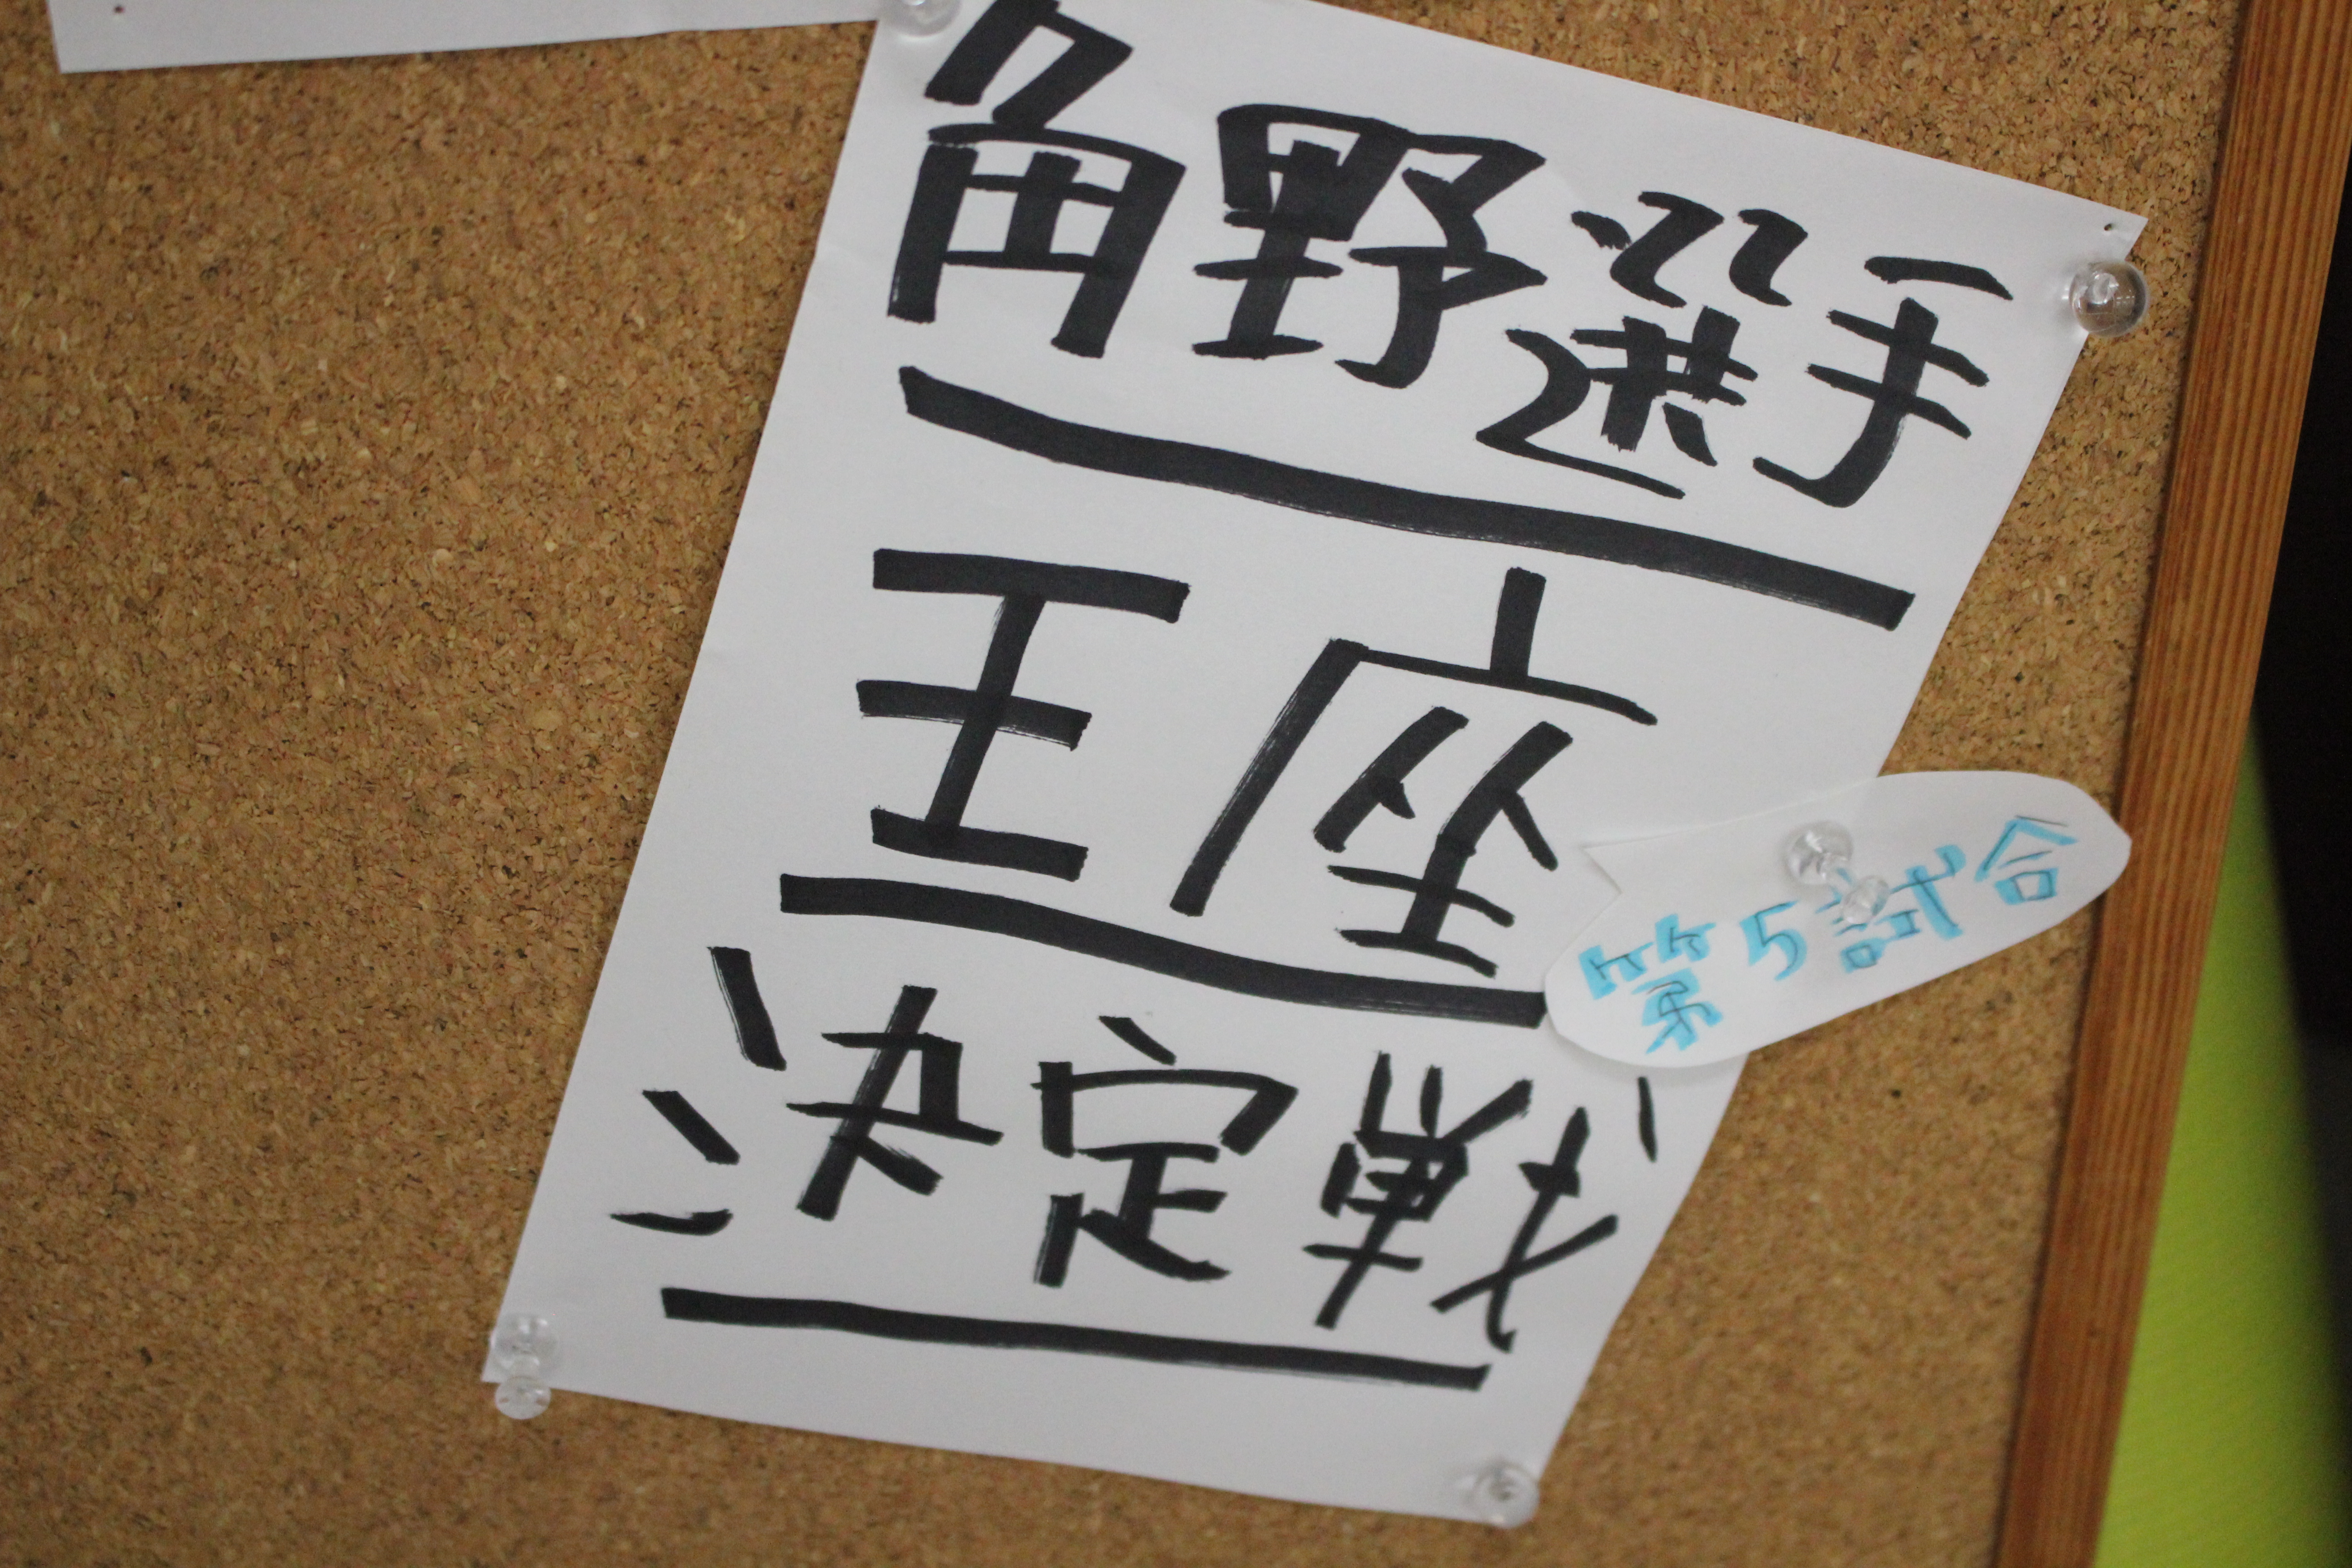 角野選手
王座
決定戦
第5試合